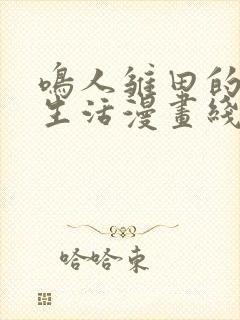 鳴人雏田的
生活漫畫綫
哈哈東